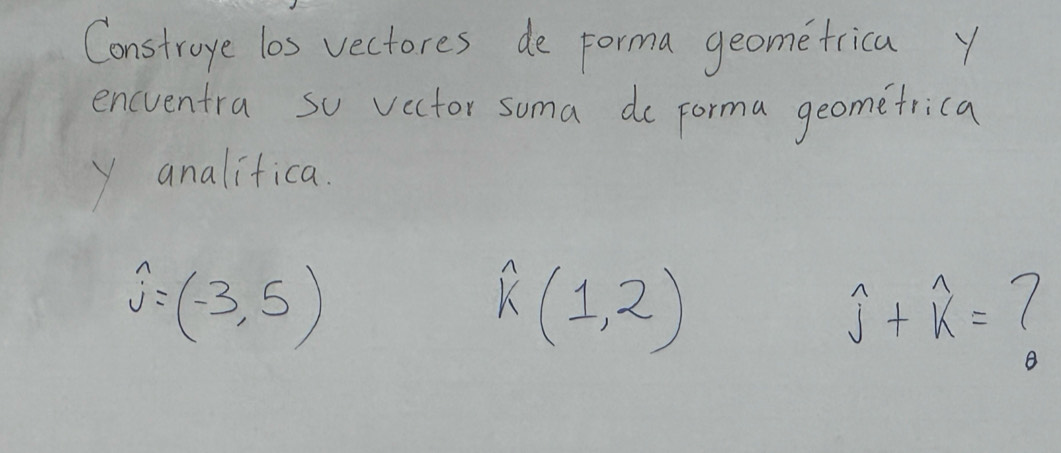 Construye los vectores de forma geométrica y
encuentra su vector suma de forma geométrica
y analítica.
ĵ=(-3,5) k̂(1,2) ĵ + k̂ = ?